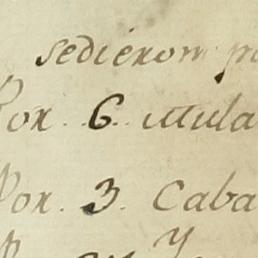 sedieron p
Por. 6. Mula
Por. 3. Caba
y